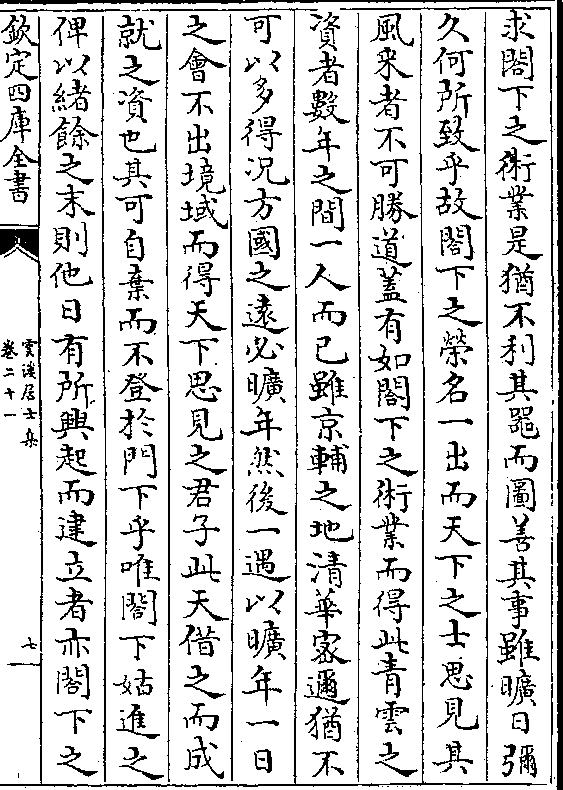 求閣下之術業是猶不利其器而圖善其事雖曠日彌
久何所致乎故閣下之榮名一出而天下之士思見其
風采者不可勝道蓋有如閣下之術業而得此青雲之
資者數年之間一人而已雖京輔之地清華密邇猶不
可以多得况方國之遠必曠年然後一遇以曠年一日
之會不出境域而得天下思見之君子此天借之而成
就之資也其可自棄而不登於門下乎唯閣下姑進之
俾以緒餘之末則他日有所興起而建立者亦閣下之
欽定四庫全書
雲溪居士集
卷二十一
七